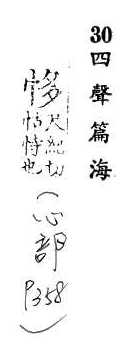 30四聲篇海
恀尺紙切
怙恃也
(心部
P358)